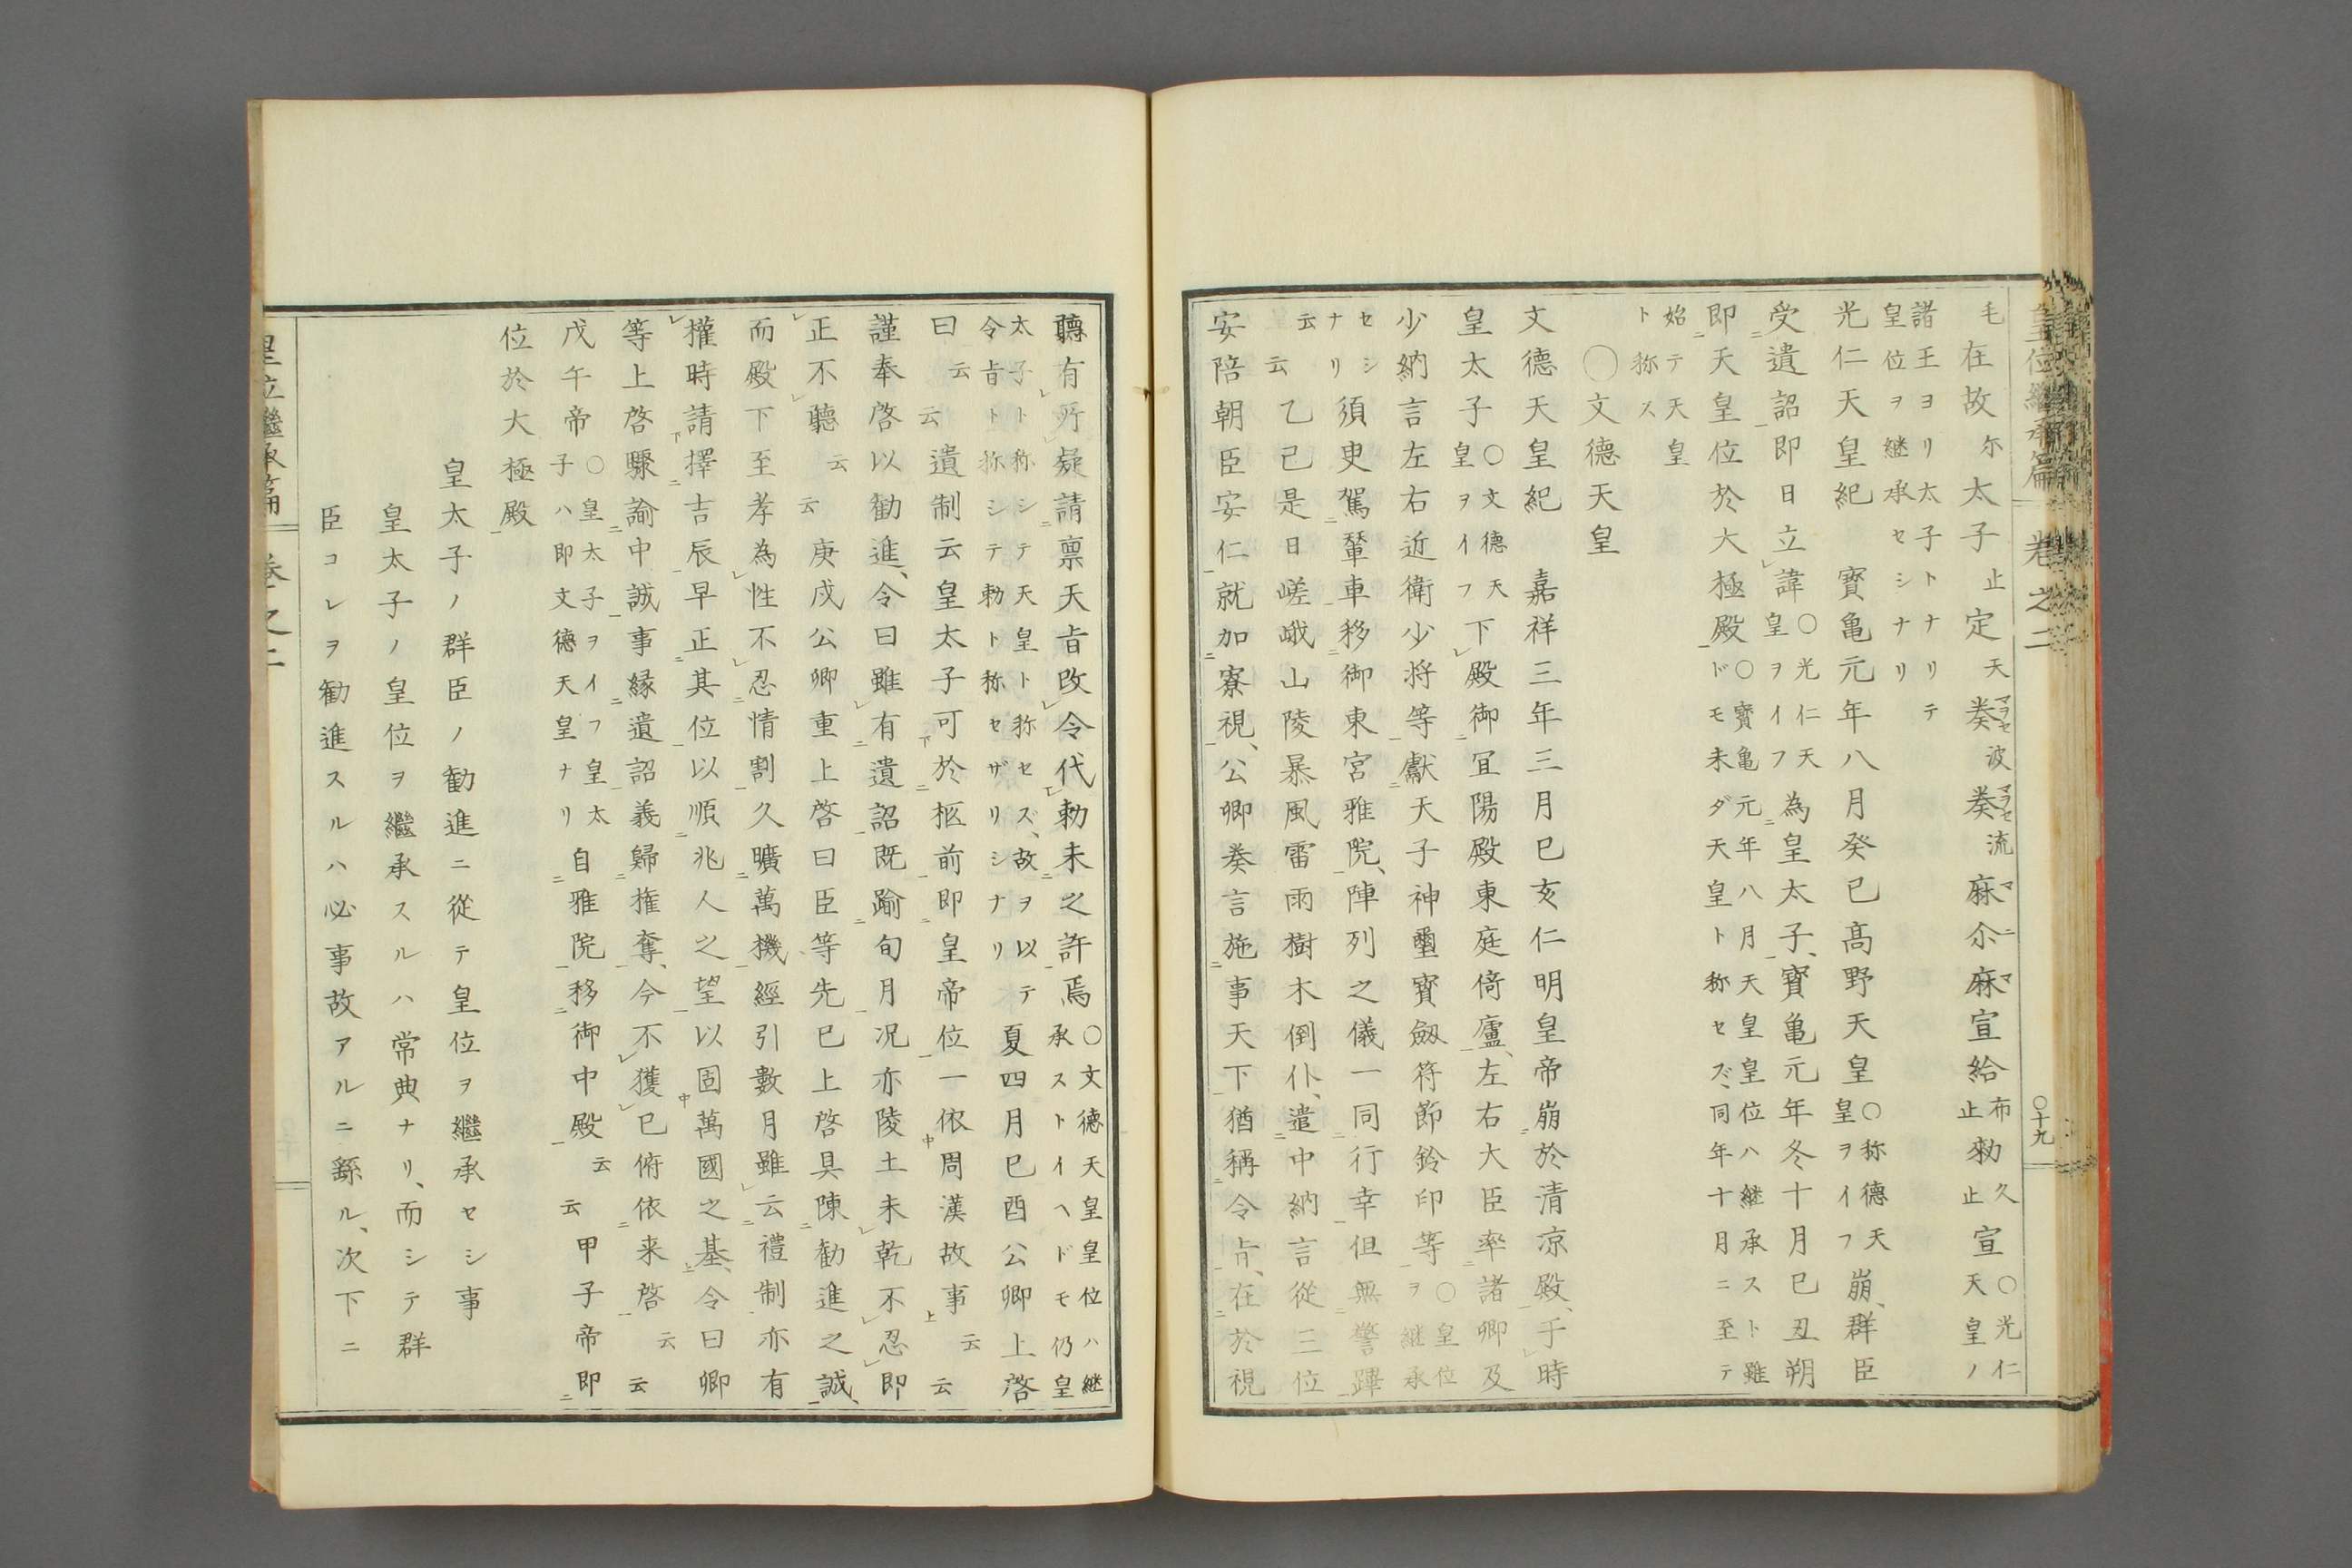 皇位繼承篇 卷之二 〇十九
毛在故尓太子止定天奏波奏流麻尒麻宣給布止勅久止宣〇光仁天皇ノ
諸王ヨリ太子トナリテ皇位ヲ継承セシナリ
光仁天皇紀 寶亀元年八月癸巳髙野天皇〇称德天皇ヲイフ崩、群臣
受遺詔即日立諱〇光仁天皇ヲイフ為皇太子、寶亀元年冬十月巳丑朔
即天皇位於大極殿〇寶亀元年八月天皇皇位ハ継承スト雖ドモ未ダ天皇ト称セズ、同年十月ニ至テ
始テ天皇ト称ス
〇文德天皇
文德天皇紀 嘉祥三年三月巳亥仁明皇帝崩於清凉殿、于時
皇太子〇文德天皇ヲイフ下殿御宜陽殿東庭倚廬、左右大臣率諸卿及
少納言左右近衛少将等獻天子神璽寶劔符節鈴印等〇皇位ヲ継承
セシナリ須臾駕輦車移御東宮雅院、陣列之儀一同行幸但無警蹕
云云乙己是日嵯峨山陵暴風雷雨樹木倒仆、遣中納言從三位
安陪朝臣安仁就加寮視、公卿奏言施事天下猶稱令旨、在於視
聽有所疑請禀天旨改令代勅未之許焉〇文德天皇皇位ハ継承ストイヘドモ仍皇
太子ト称シテ天皇ト称セズ、故ヲ以テ令旨ト称シテ勅ト称セザリシナリ夏四月巳酉公卿上啓
曰云云遺制云皇太子可於柩前即皇帝位一依周漢故事云云
謹奉啓以勸進、令曰雖有遺詔既踰旬月况亦陵土未乾不忍即
正不聽云云庚戌公卿重上啓曰臣等先巳上啓具陳勸進之誠、
而殿下至孝為性不忍情割久曠萬機經引數月雖云禮制亦有
權時請擇吉辰早正其位以順兆人之望以固萬國之基、令曰卿
等上啓驟諭中誠事緣遺詔義歸権奪、今不獲已俯依来啓云云
戊午帝〇皇太子ヲイフ皇太子ハ即文德天皇ナリ自雅院移御中殿云云甲子帝即
位於大極殿
皇太子ノ群臣ノ勸進ニ從テ皇位ヲ繼承セシ事
皇太子ノ皇位ヲ繼承スルハ常典ナリ、而シテ群
臣コレヲ勸進スルハ必事故アルニ繇ル、次下ニ
皇位繼承篇 卷之二